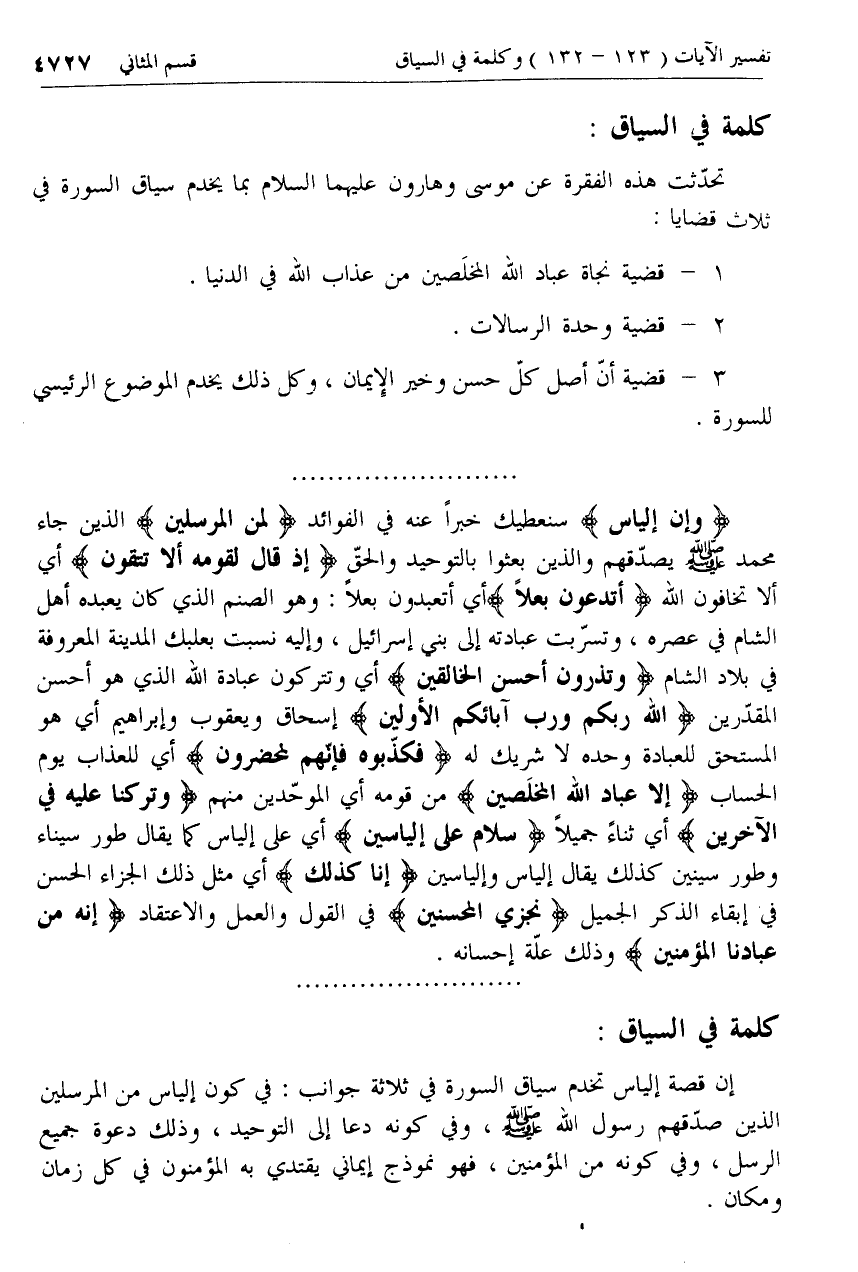 تفسير الآيات ( ١٢٣ – ١٣٢ ) وكلمة في السياق قسم المثاني ٤٧٢٧
كلمة في السياق :
تحدّثت هذه الفقرة عن موسى وهارون عليهما السلام بما يخدم سياق السورة في
ثلاث قضايا :
١ – قضية نجاة عباد الله المخلَصين من عذاب الله في الدنيا .
٢ – قضية وحدة الرسالات .
٣ – قضية أنّ أصل كلّ حسن وخير الإيمان ، وكل ذلك يخدم الموضوع الرئيسي
للسورة .
........................
﴿ وإن إلياس ﴾ سنعطيك خبراً عنه في الفوائد ﴿ لمن المرسلين ﴾ الذين جاء
محمد ﷺ يصدّقهم والذين بعثوا بالتوحيد والحقّ ﴿ إذ قال لقومه ألا تتقون ﴾ أي
ألا تخافون الله ﴿ أتدعون بعلاً ﴾ أي أتعبدون بعلاً : وهو الصنم الذي كان يعبده أهل
الشام في عصره ، وتسرّبت عبادته إلى بني إسرائيل ، وإليه نسبت بعلبك المدينة المعروفة
في بلاد الشام ﴿ وتذرون أحسن الخالقين ﴾ أي وتتركون عبادة الله الذي هو أحسن
المقدّرين ﴿ الله ربكم ورب آبائكم الأولين ﴾ إسحاق ويعقوب وإبراهيم أي هو
المستحق للعبادة وحده لا شريك له ﴿ فكذّبوه فإنّهم لمحضرون ﴾ أي للعذاب يوم
الحساب ﴿ إلا عباد الله المخلَصين ﴾ من قومه أي الموحّدين منهم ﴿ وتركنا عليه في
الآخرين ﴾ أي ثناءً جميلاً ﴿ سلام على إلياسين ﴾ أي على إلياس كما يقال طور سيناء
وطور سينين كذلك يقال إلياس وإلياسين ﴿ إنا كذلك ﴾ أي مثل ذلك الجزاء الحسن
في إبقاء الذكر الجميل ﴿ نجزي المحسنين ﴾ في القول والعمل والاعتقاد ﴿ إنه من
عبادنا المؤمنين ﴾ وذلك علّة إحسانه .
........................
كلمة في السياق :
إن قصة إلياس تخدم سياق السورة في ثلاثة جوانب : في كون إلياس من المرسلين
الذين صدّقهم رسول الله ﷺ ، وفي كونه دعا إلى التوحيد ، وذلك دعوة جميع
الرسل ، وفي كونه من المؤمنين ، فهو نموذج إيماني يقتدي به المؤمنون في كل زمان
ومكان .